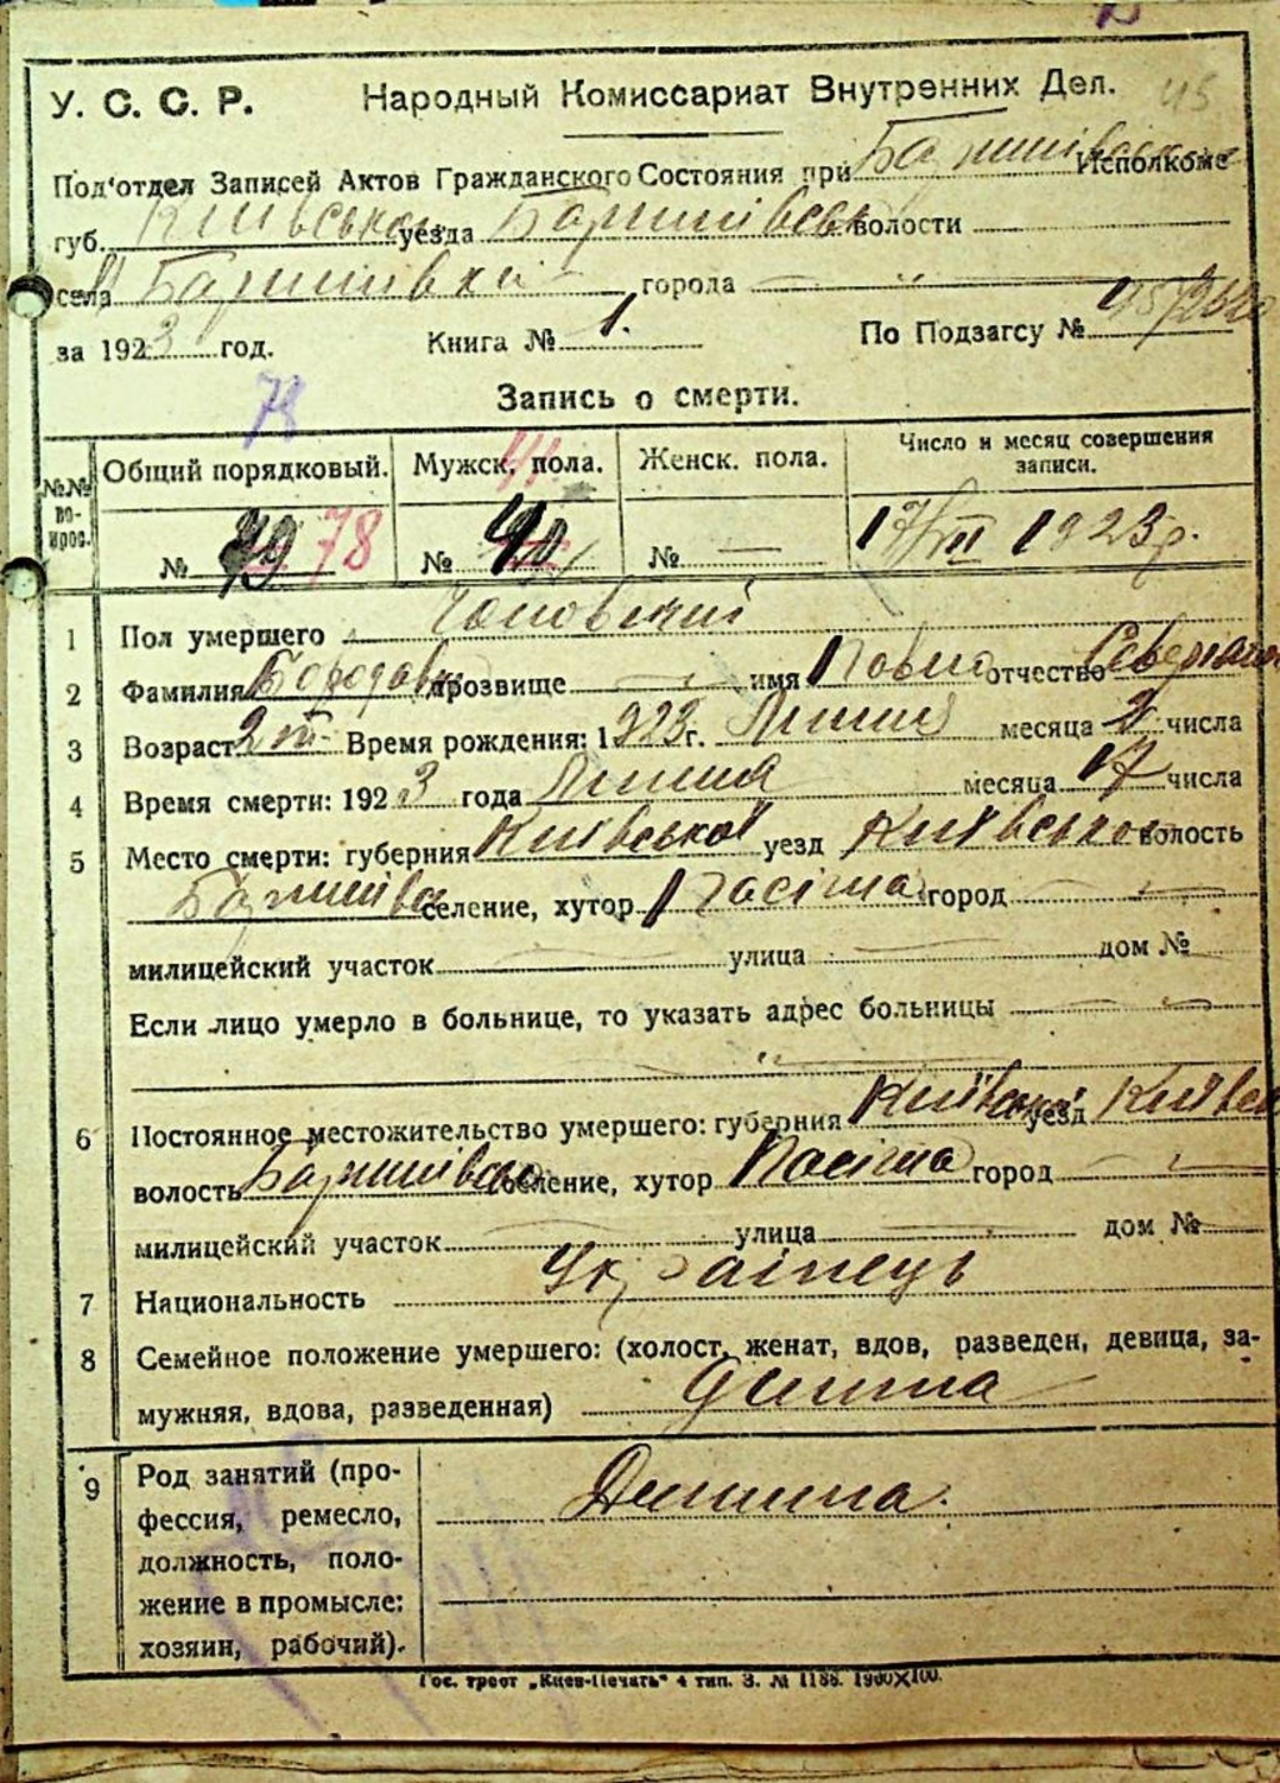 45
У. С. С. Р. Народный Комиссариат Внутренних Дел.
Под'отдел Записей Актов Гражданского Состояния при Исполкоме
губ. Київської уезда волости
села города
за 1923 год. Книга № 1. По Подзагсу №
Запись о смерти.
78
№№ вопрос. Общий порядковый. Мужск. пола. Женск. пола. Число и месяц совершения записи.
41
№ 79 78 № 40 № — 17/VII 1923р.
1 Пол умершего Чоловічий
2 Фамилия прозвище — имя Павло отчество
3 Возраст Время рождения: 1923г. Липня месяца 2 числа
4 Время смерти: 1923 года Липня месяца 17 числа
5 Место смерти: губерния Київської уезд Київського волость
селение, хутор Пасіша город —
милицейский участок — улица — дом №
Если лицо умерло в больнице, то указать адрес больницы —
6 Постоянное местожительство умершего: губерния Київської уезд
волость селение, хутор Пасіша город —
милицейский участок — улица — дом №
7 Национальность Українець
8 Семейное положение умершего: (холост, женат, вдов, разведен, девица, за-
мужняя, вдова, разведенная) Дитина
9 Род занятий (про- Дитина.
фессия, ремесло,
должность, поло-
жение в промысле:
хозяин, рабочий).
Гос. трест „Киев-Печать“ 4 тип. З. № 1188.